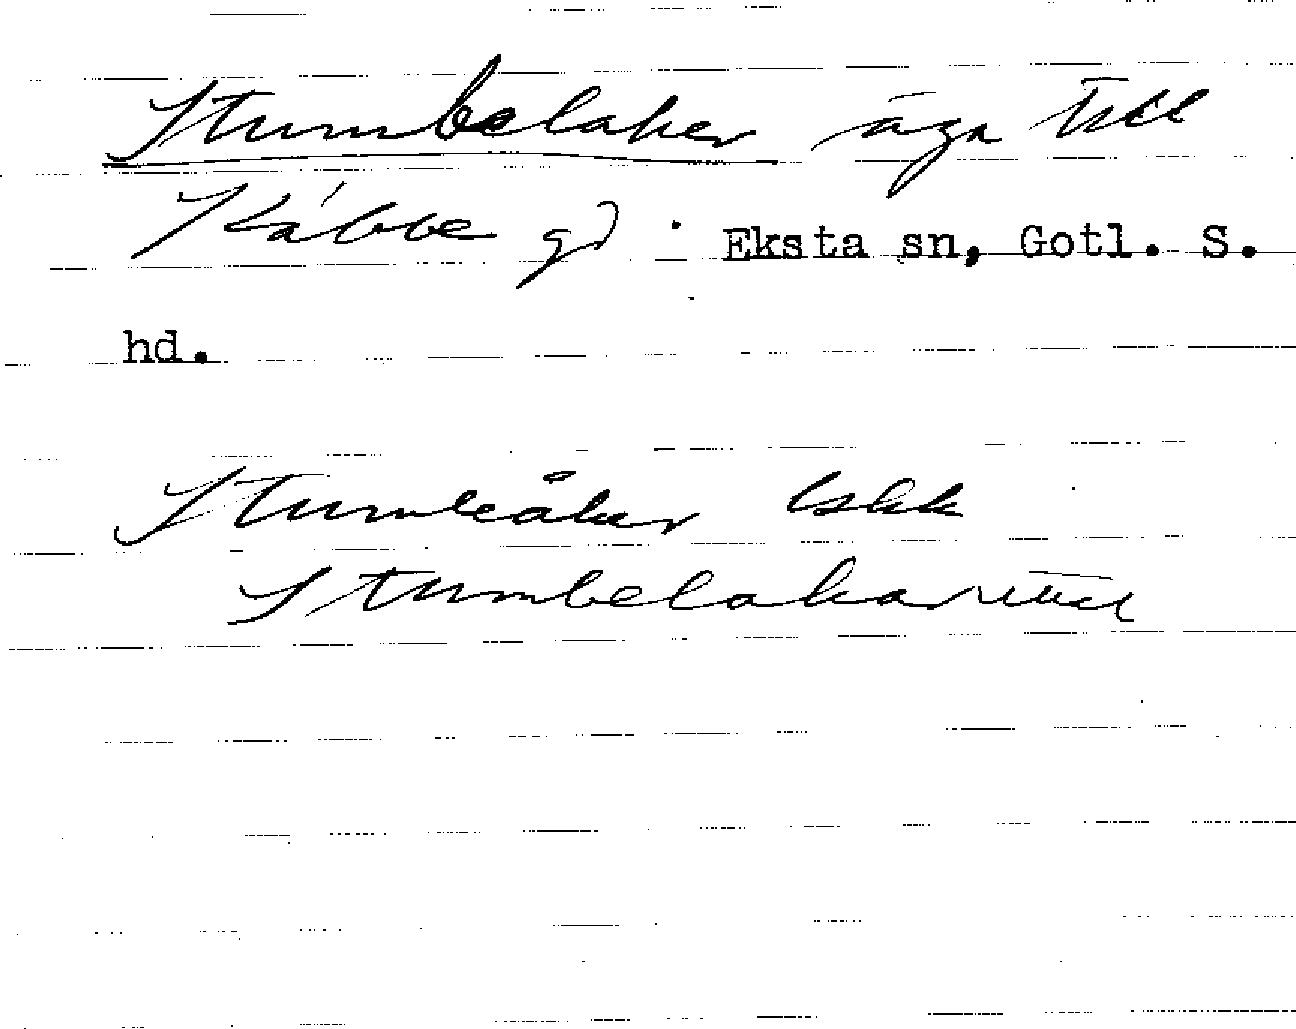 Stumbelaker äga till
Kåbbe gd. Eksta sn, Gotl. S.
hd.
Stumleåker lskk
Stumbelakar